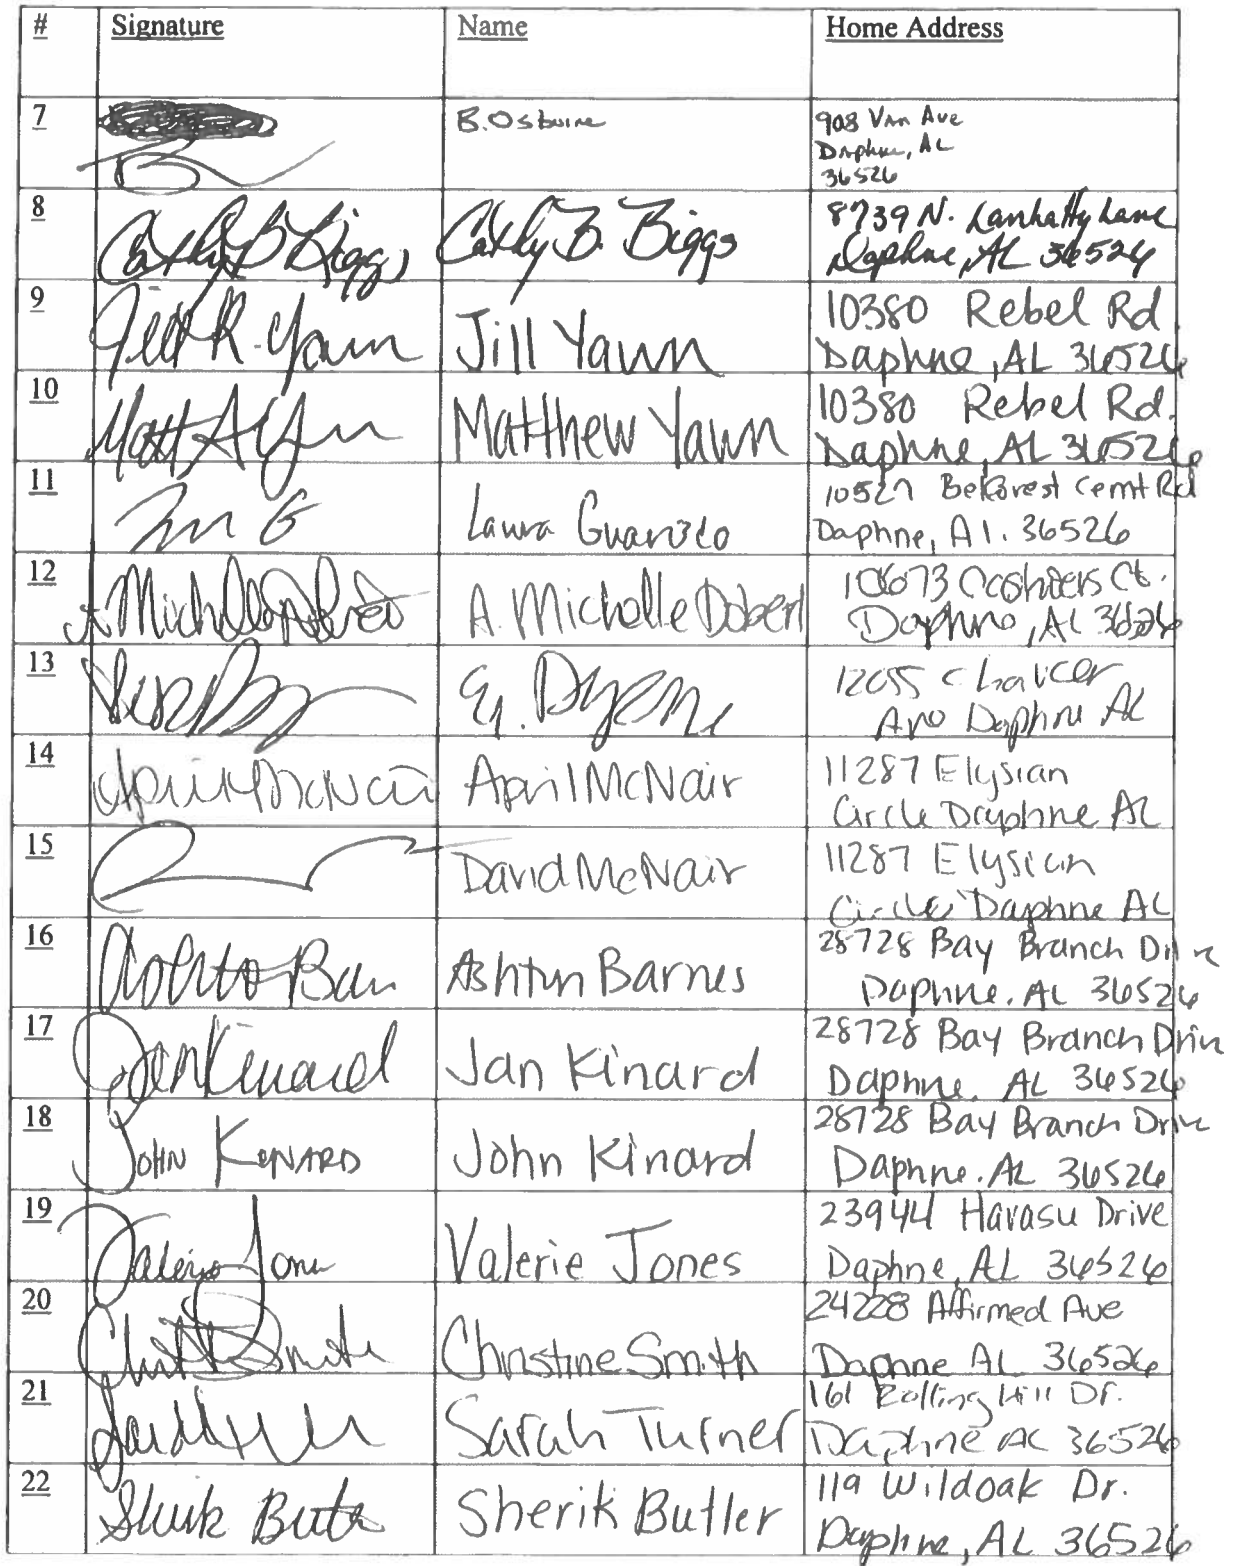 # Signature Name Home Address
7 B. Osburne 908 Van Ave
Daphne, AL
36526
8 Cathy B Biggs Cathy B. Biggs 8739 N. Lamhatty Lane
Daphne, AL 36526
9 Jill R. Yawn Jill Yawn 10380 Rebel Rd
Daphne, AL 36526
10 Matt Matthew Yawn 10380 Rebel Rd.
Daphne, AL 36526
11 Laura Guarisco 10527 Belforest Cemt Rd
Daphne, Al. 36526
12 A. Michelle Dobert A. Michelle Dobert 10673 Cashiers Ct.
Daphne, AL 36526
13 12055 Chaucer
Daphne AL
14 April McNair April McNair 11287 Elysian
Circle Daphne AL
15 David McNair 11287 Elysian
Circle Daphne AL
16 Ashtyn Barnes 28728 Bay Branch Drive
Daphne. AL 36526
17 Jan Kinard Jan Kinard 28728 Bay Branch Drive
Daphne. AL 36526
18 John Kinard John Kinard 28728 Bay Branch Drive
Daphne. AL 36526
19 Valerie Jones Valerie Jones 23944 Havasu Drive
Daphne, AL 36526
20 Christine Smith 24228 Affirmed Ave
Daphne AL 36526
21 Sarah Turner 161 Rolling Hill Dr.
Daphne AL 36526
22 Sherik Butler 119 Wildoak Dr.
Daphne, AL 36526